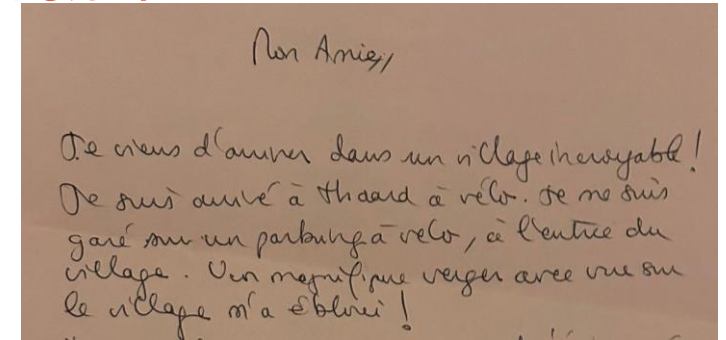 Mon Amie,
Je viens d'arriver dans un village incroyable !
Je suis arrivé à à vélo. Je me suis
garé sur un parking à vélo, à l'entrée du
village. Un magnifique verger avec vue sur
le village m'a ébloui !